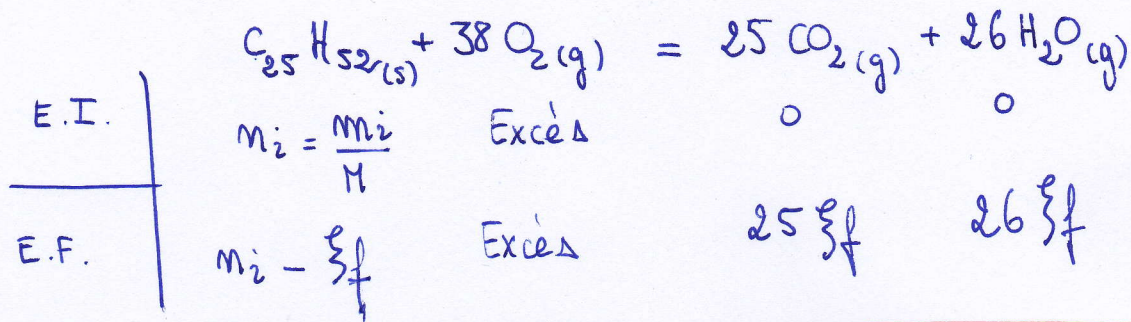 C25H52(s) + 38 O2(g) = 25 CO2(g) + 26 H2O(g)
E.I. ni = mi/M Excès 0 0
E.F. ni - ξf Excès 25 ξf 26 ξf